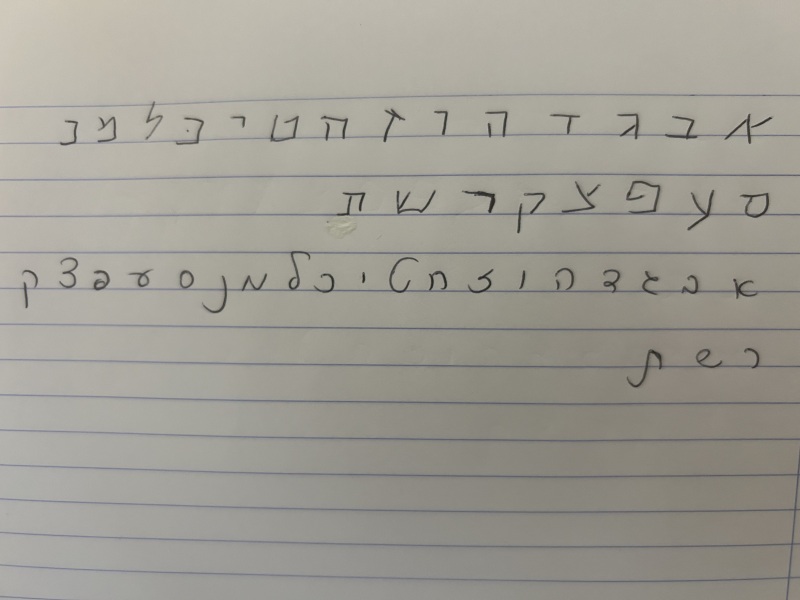 א ב ג ד ה ו ז ח ט י כ ל מ נ
ס ע פ צ ק ר ש ת
א ב ג ד ה ו ז ח ט י כ ל מ נ ס ע פ צ ק
ר ש ת